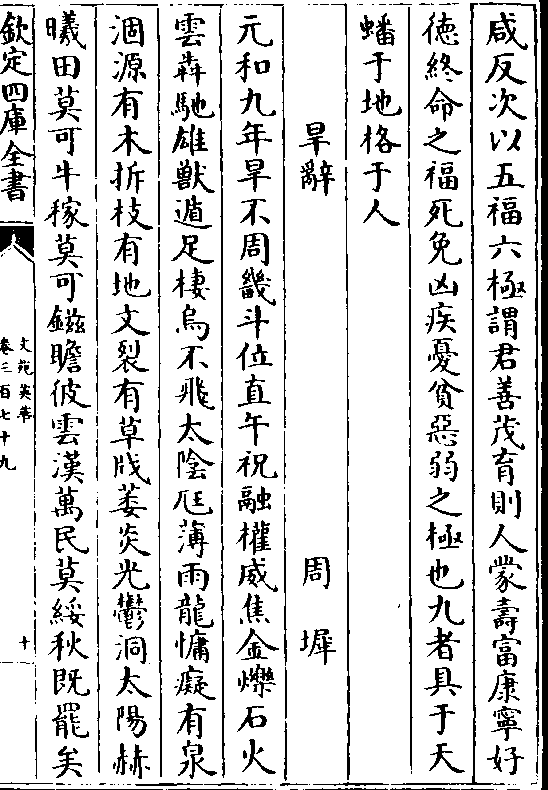 咸反次以五福六極謂君善茂育則人蒙壽富康寧好
德終命之福死免凶疾憂貧惡弱之極也九者具于天
蟠于地格于人
旱辭 周墀
元和九年旱不周畿斗位直午祝融權威焦金爍石火
雲犇馳雄獸遁足棲烏不飛太陰尫薄雨龍慵癡有泉
涸源有木拆枝有地文裂有草戕萎炎光鬱洞太陽赫
曦田莫可牛稼莫可鎡瞻彼雲漢萬民莫綏秋既罷矣
欽定四庫全書
文苑英華
卷三百七十九
十